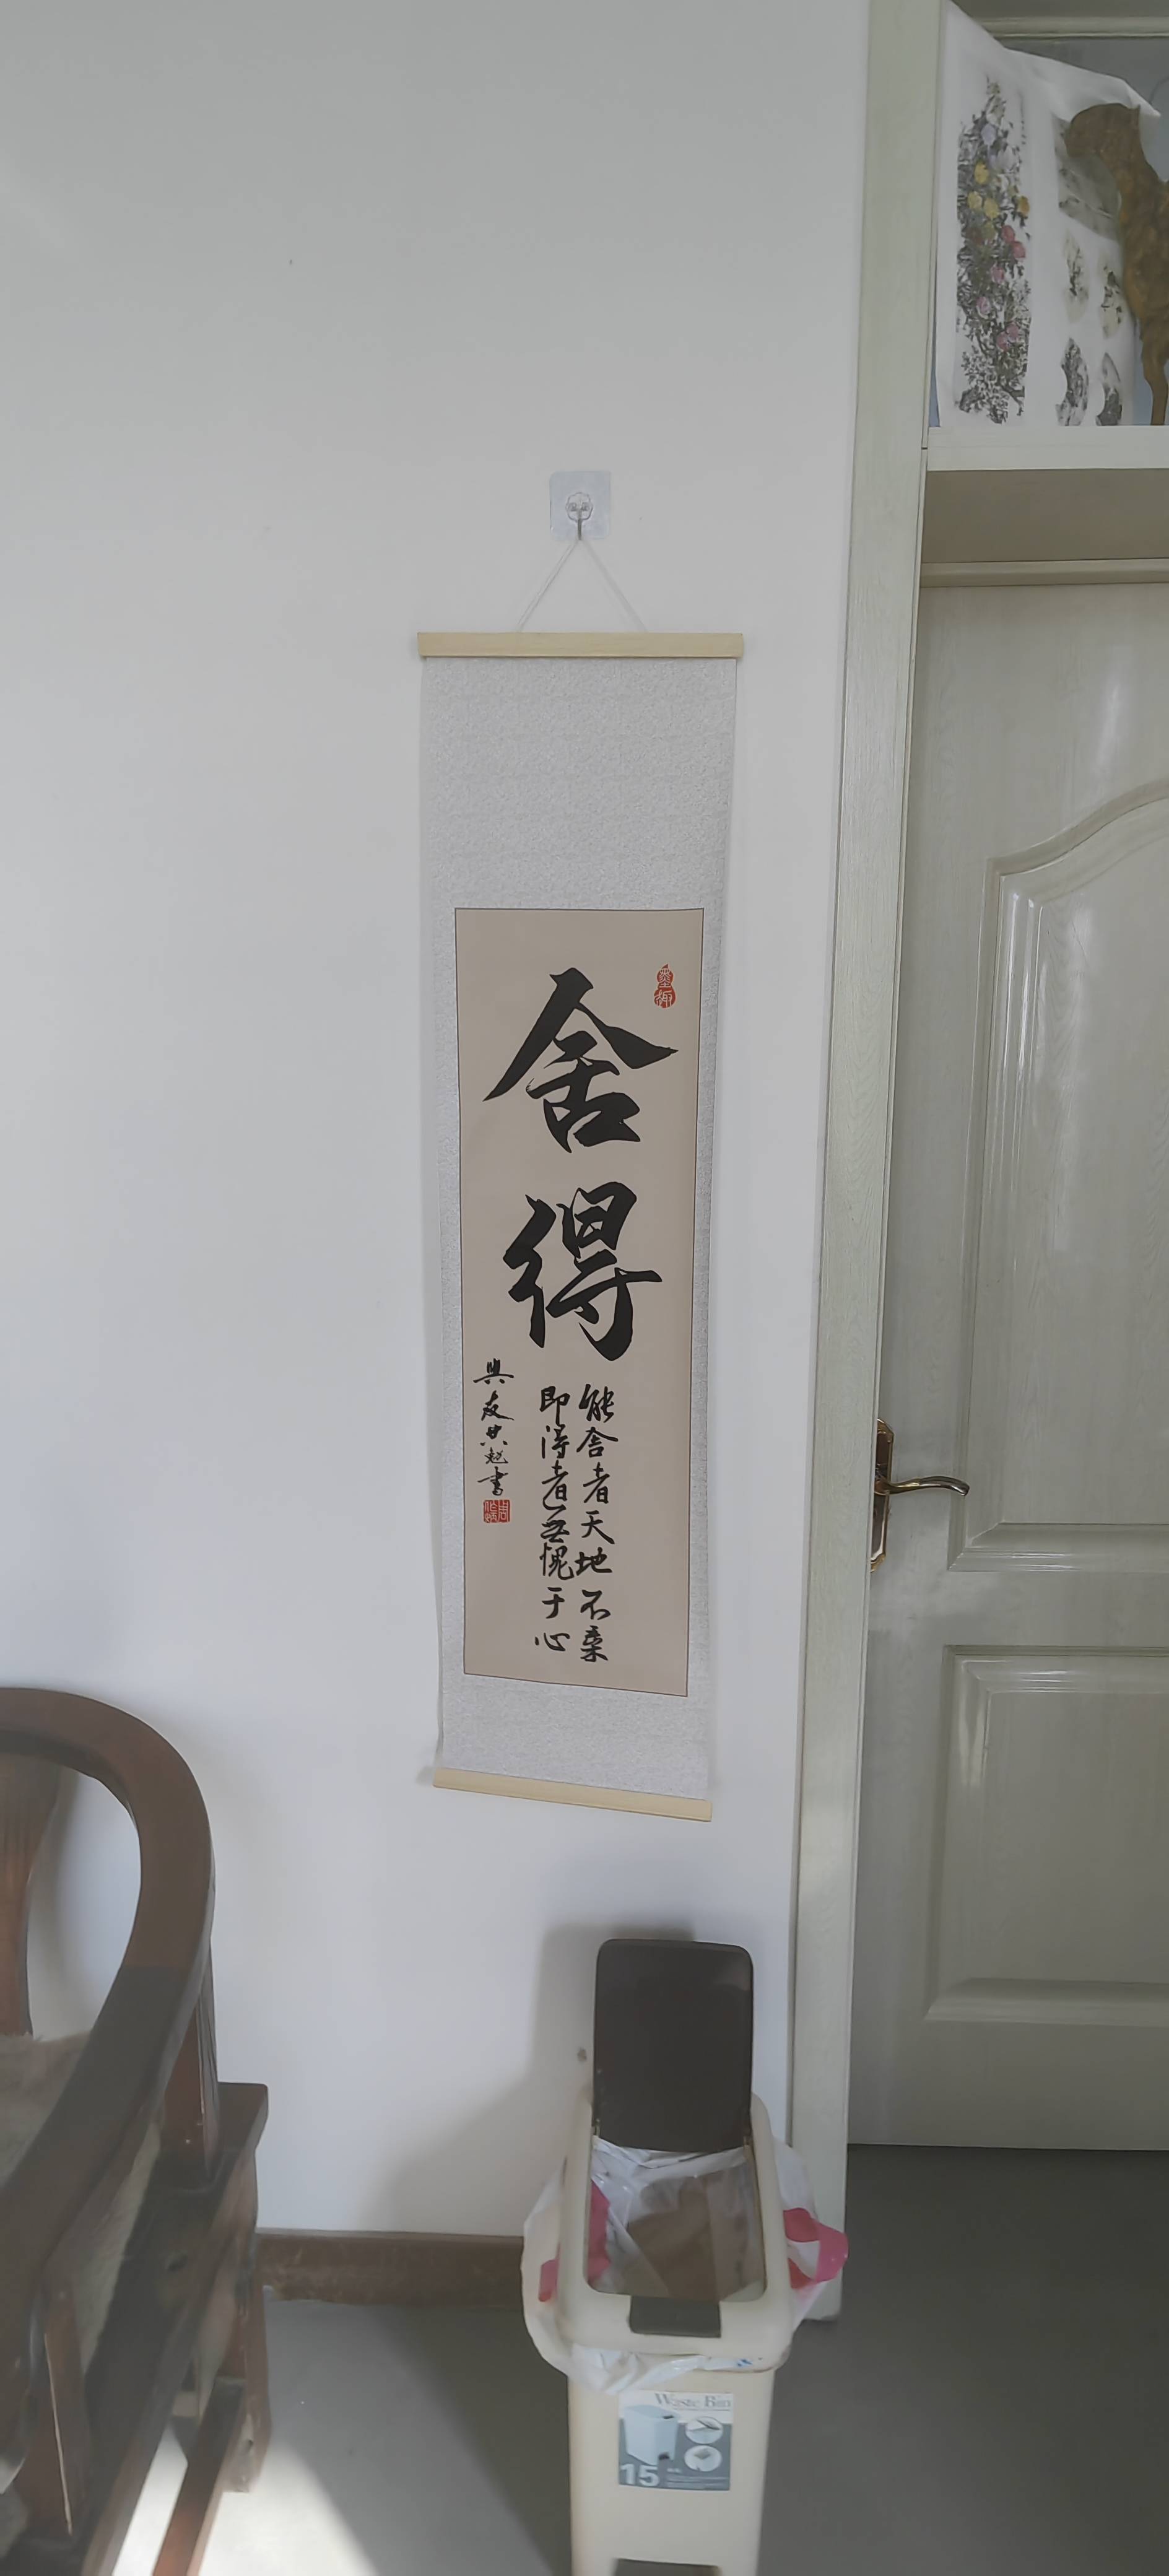 舍得
能舍者天地不弃
即得者无愧于心
與友共勉書
Waste Bin
15